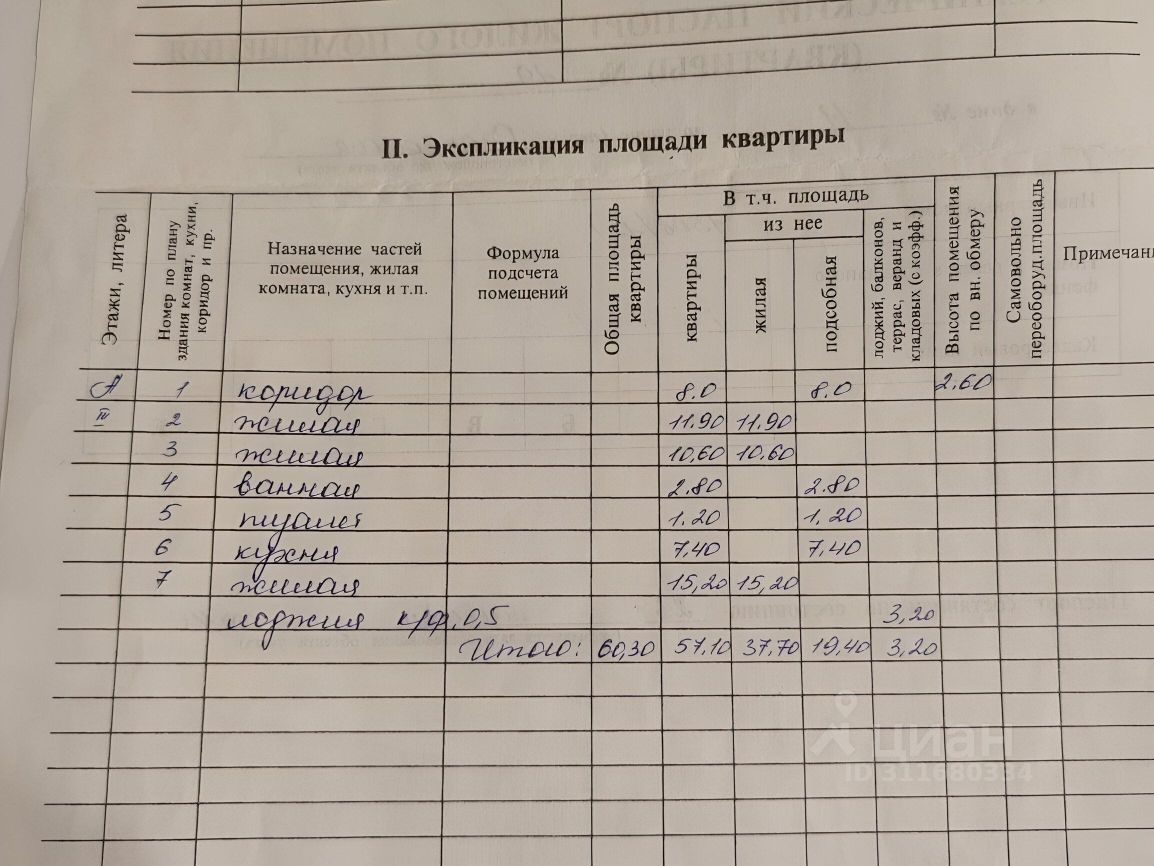 II. Экспликация площади квартиры
Этажи, литера
Номер по плану здания комнат, кухни, коридор и пр.
Назначение частей помещения, жилая комната, кухня и т.п.
Формула подсчета помещений
Общая площадь квартиры
В т.ч. площадь
из нее
квартиры
жилая
подсобная
лоджий, балконов, террас, веранд и кладовых (с коэфф.)
Высота помещения по вн. обмеру
Самовольно переоборуд.площадь
Примечан
А 1 коридор 8.0 8.0 2.60
IV 2 жилая 11.90 11.90
3 жилая 10,60 10.60
4 ванная 2.80 2.80
5 туалет 1.20 1,20
6 кухня 7,40 7,40
7 жилая 15,20 15,20
лоджия к/ф. 0,5 3,20
Итого: 60,30 57,10 37,70 19,40 3,20
циан
ID 311680334